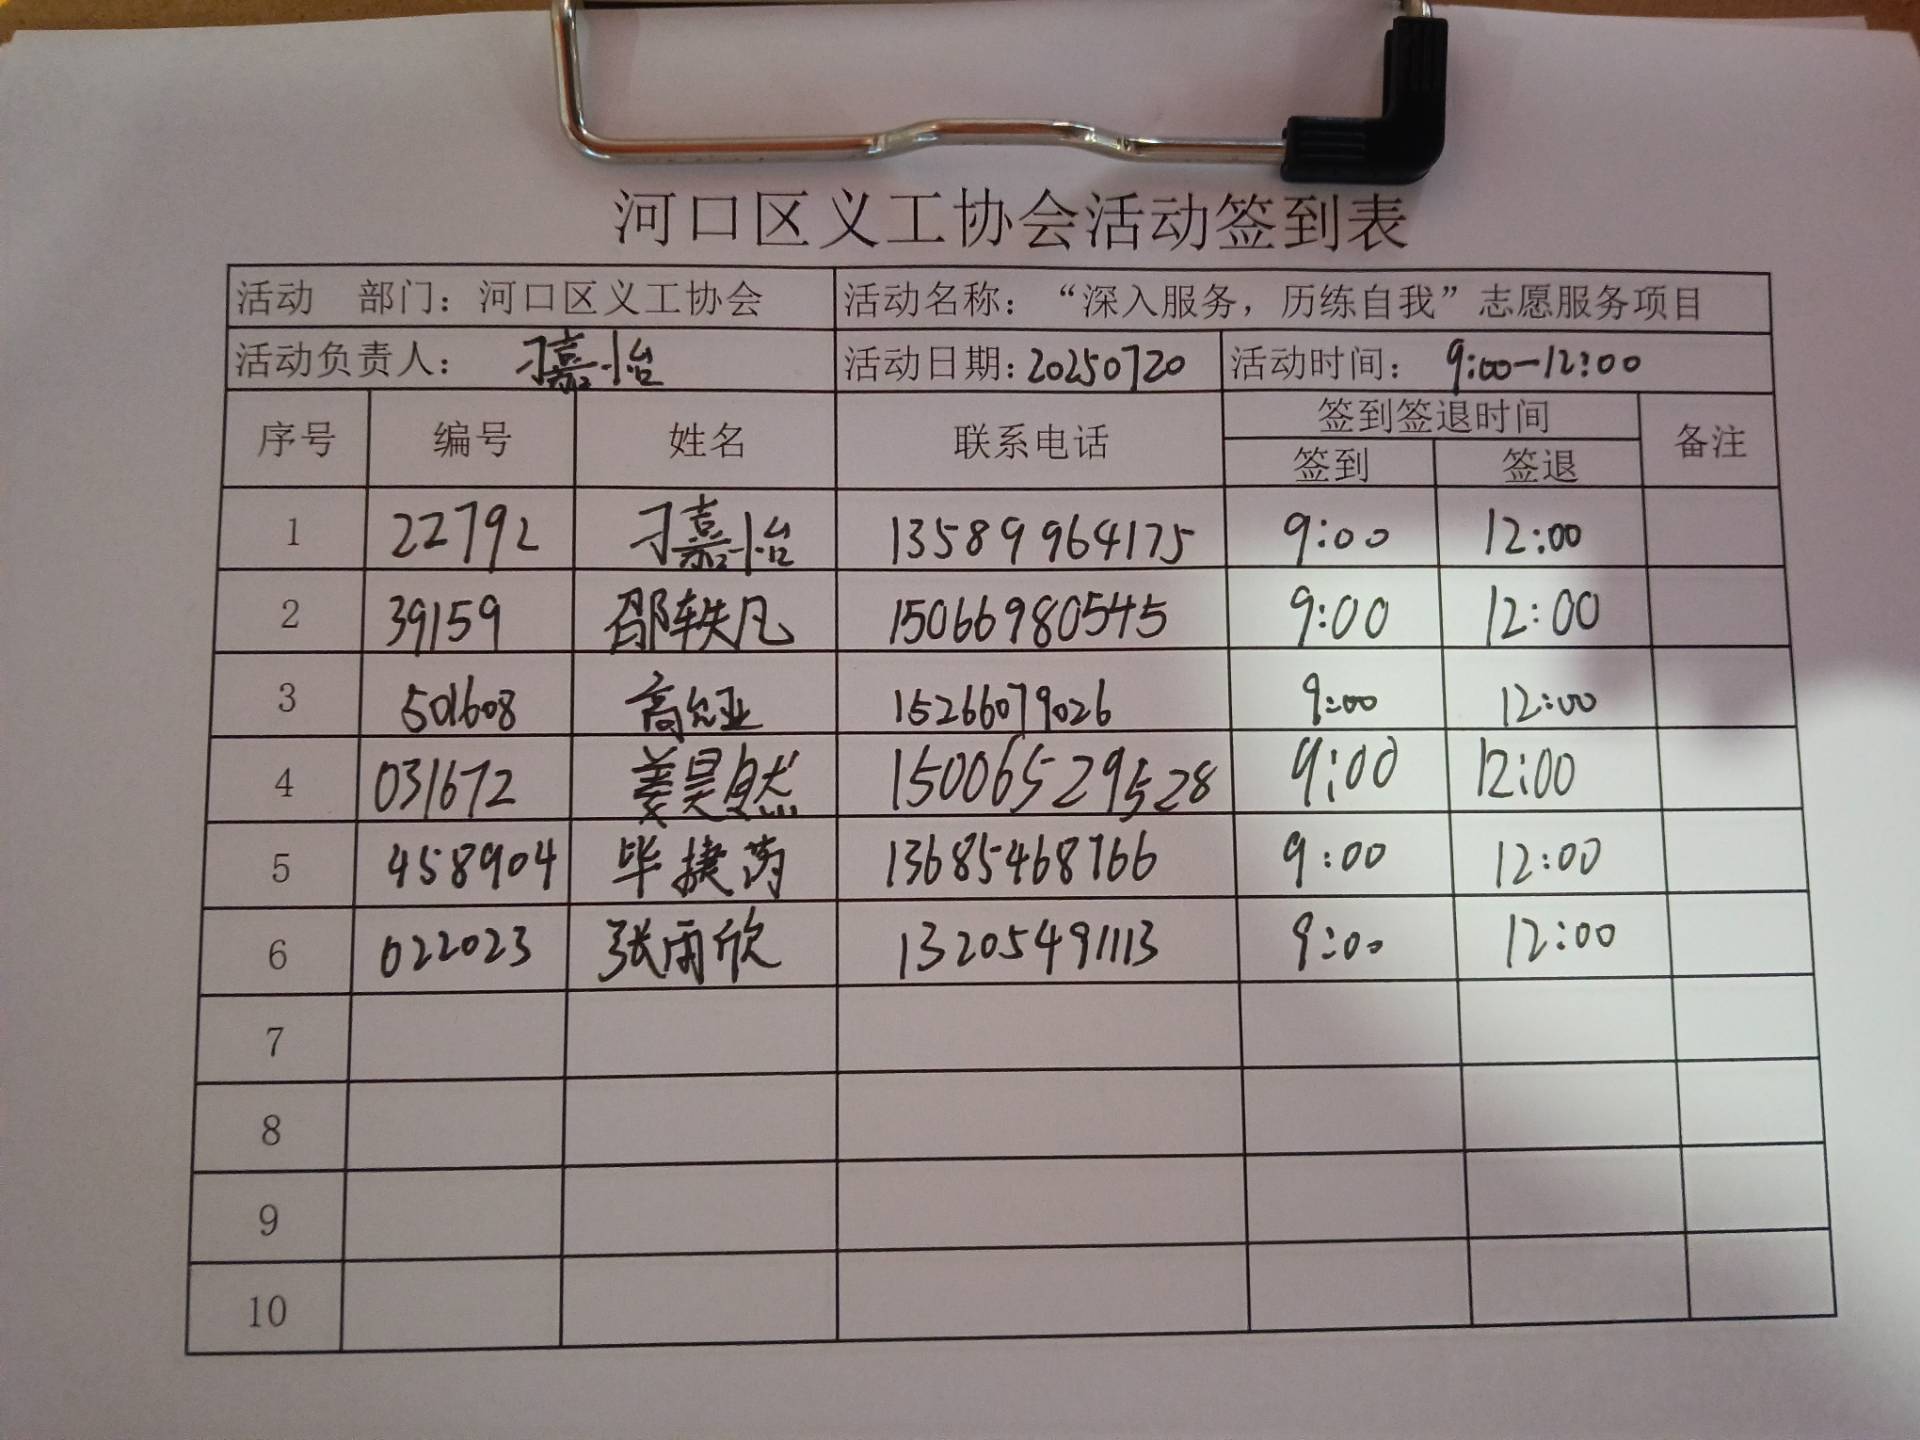 河口区义工协会活动签到表
活动 部门：河口区义工协会 活动名称：“深入服务，历练自我”志愿服务项目
活动负责人： 刁嘉怡 活动日期：20250720 活动时间： 9:00-12:00
序号 编号 姓名 联系电话 签到签退时间 备注
签到 签退
1 22792 刁嘉怡 13589964175 9:00 12:00
2 39159 邵轶凡 15066980545 9:00 12:00
3 501608 高允亚 15266079026 9:00 12:00
4 031672 姜昊然 15006529528 9:00 12:00
5 458904 毕捷芮 13685468766 9:00 12:00
6 022023 张雨欣 13205491113 9:00 12:00
7
8
9
10